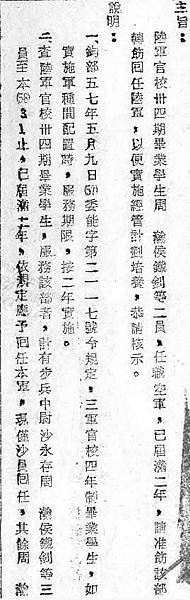 主旨：
陸軍官校卅四期畢業學生周　瀚侯鐵釗等二員，任職空軍，已屆滿二年，請准飭該部
轉飭回任陸軍，以便實施經管計劃培養，恭請核示。
說明：
一、鈞部五七年五月九日(57)委能字第二一一七號令規定，三軍官校四年制畢業學生，如
實施軍種間配置時，服務期限，按二年實施。
二、查陸軍官校卅四期畢業學生，服務該部者，計有步兵中尉沙永存周　瀚侯鐵釗等三
員至本69.3.1.止，已屆滿二年，依規定應予回任本軍，現僅沙員回任，其餘周　瀚